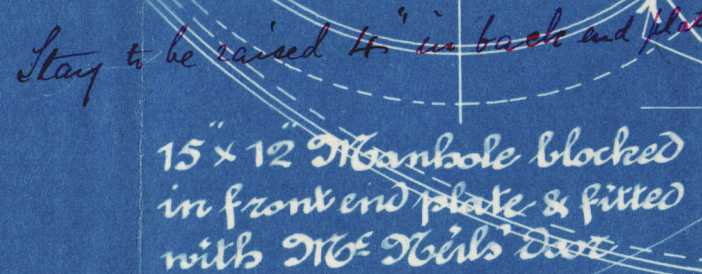 Stay to be raised 4" in back end plat
15" x 12" Manhole blocked
in front end plate & fitted
with Mc Neils' door